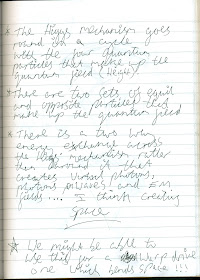 * The Higgs mechanism goes
round in a cycle
with the four Quantum
particles that make up the
quantum field (Higgs).
* There are two sets of equal
and opposite particles that
make up the quantum field
* There is a two way
energy exchange across
the Higgs mechanism rather
than around it that
creates virtual photons,
photons (waves) and EM
fields.... I think creating
Space
* We might be able to
use this for a warp drive
one which bends space!!!